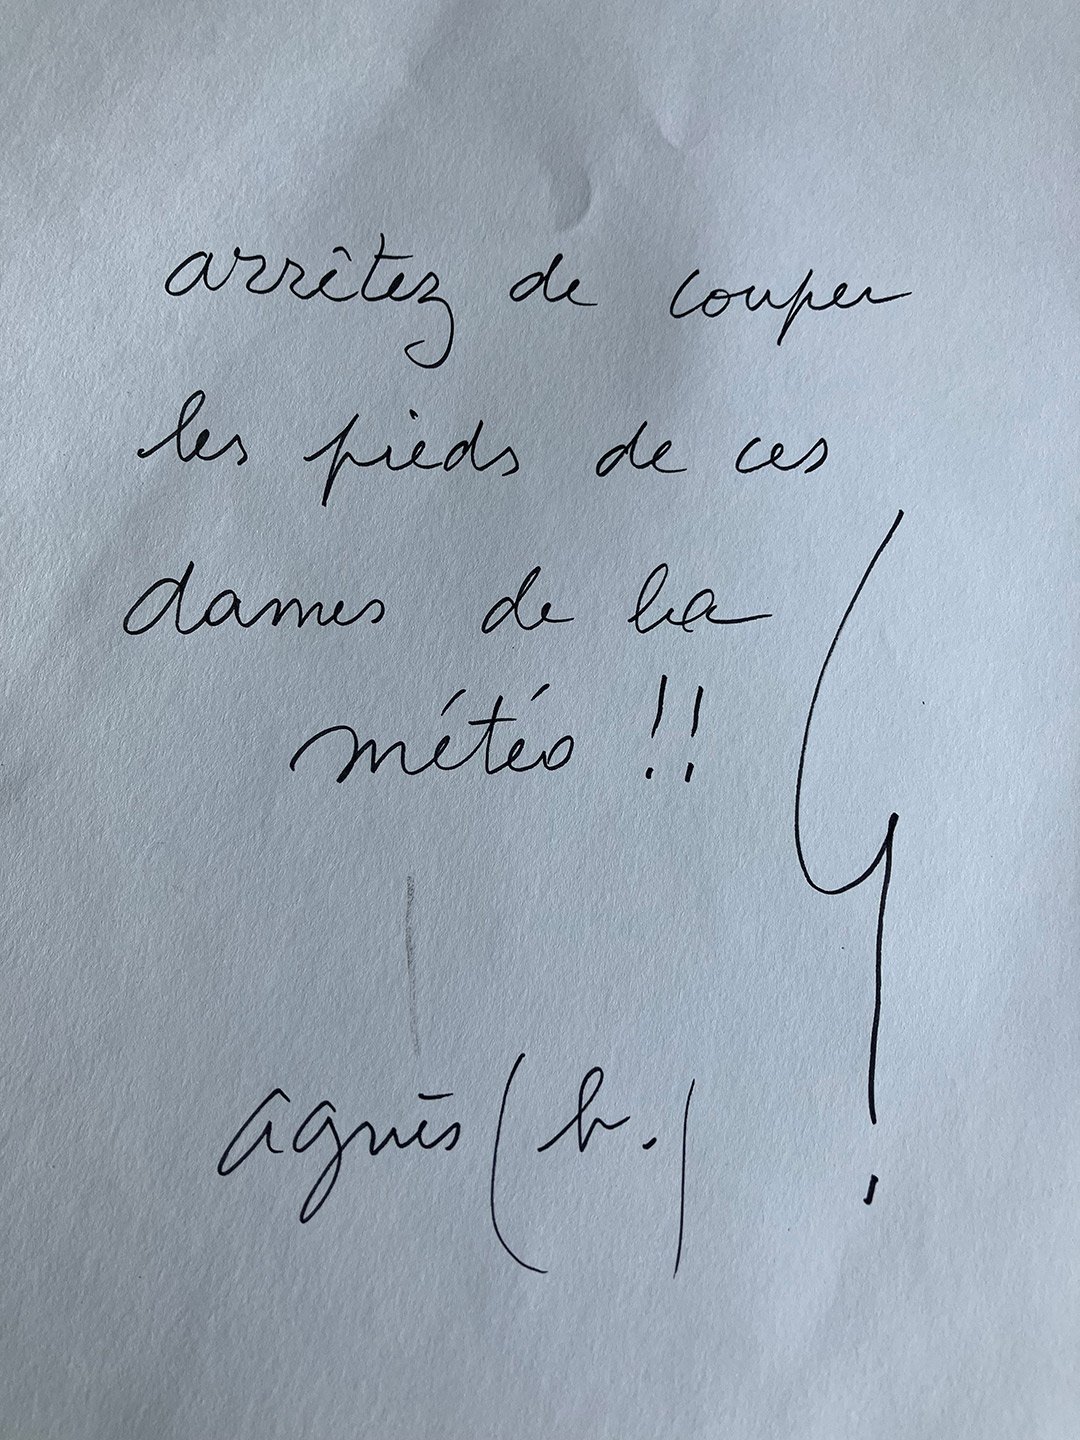 arrêtez de couper
les pieds de ces
dames de la
météo !!
agnès (b.)